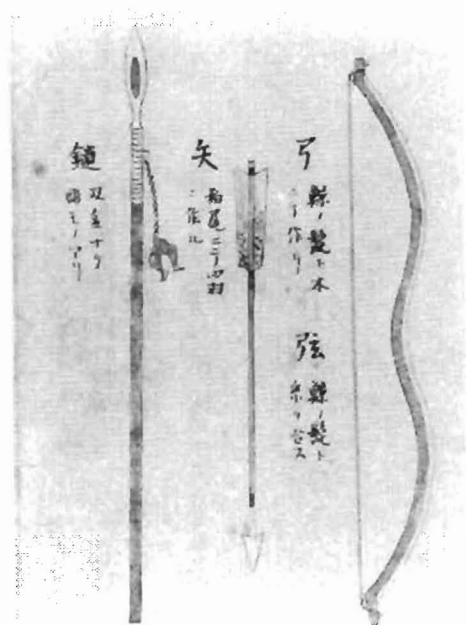 弓
鯨ノ髭ト木
ニテ作リ
弦
鯨ノ髭ト
糸ヲ合ス
矢
尾ニテ四羽
ニ作ル
ナリ
モノアリ